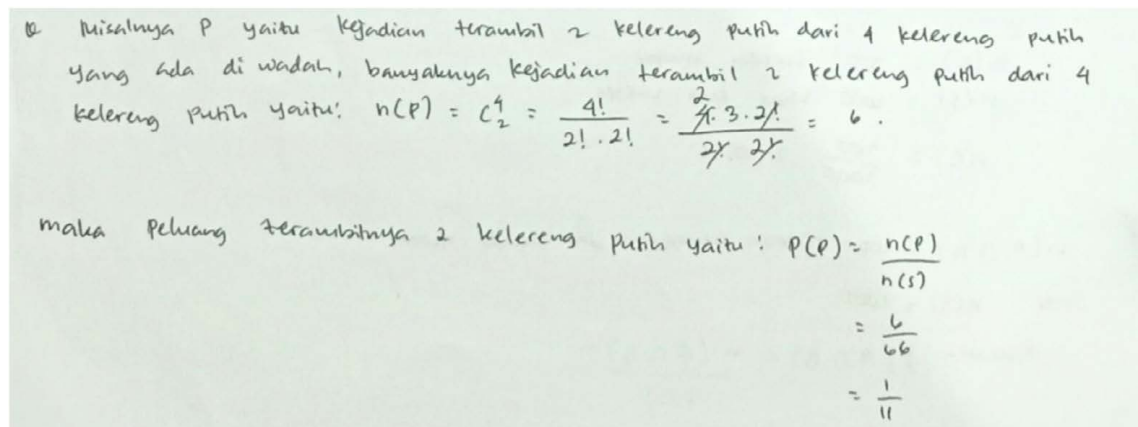 Misalnya P yaitu kejadian terambil 2 kelereng putih dari 4 kelereng putih
yang ada di wadah, banyaknya kejadian terambil 2 kelereng putih dari 4
kelereng putih yaitu: n(P) = C⁴₂ = 4! / 2! . 2! = 4 . 3 . 2! / 2! 2! = 6 .
maka peluang terambilnya 2 kelereng putih yaitu : P(P) = n(P) / n(S)
= 6 / 66
= 1 / 11